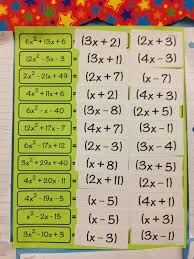 6x² + 13x + 6 = (3x + 2) (2x + 3)
12x² - 5x - 3 = (3x + 1) (4x - 3)
2x² - 21x + 49 = (2x + 7) (x - 7)
4x² + 11x + 6 = (x + 2) (4x + 3)
6x² - x - 40 = (3x - 8) (2x + 5)
12x² + 17x - 7 = (4x + 7) (3x - 1)
6x² - 17x + 12 = (2x - 3) (3x - 4)
3x² + 29x + 40 = (x + 8) (3x + 5)
4x² + 20x - 11 = (2x + 11) (2x - 1)
4x² - 19x - 5 = (x - 5) (4x + 1)
x² - 2x - 15 = (x - 5) (x + 3)
3x² - 10x + 3 = (x - 3) (3x - 1)